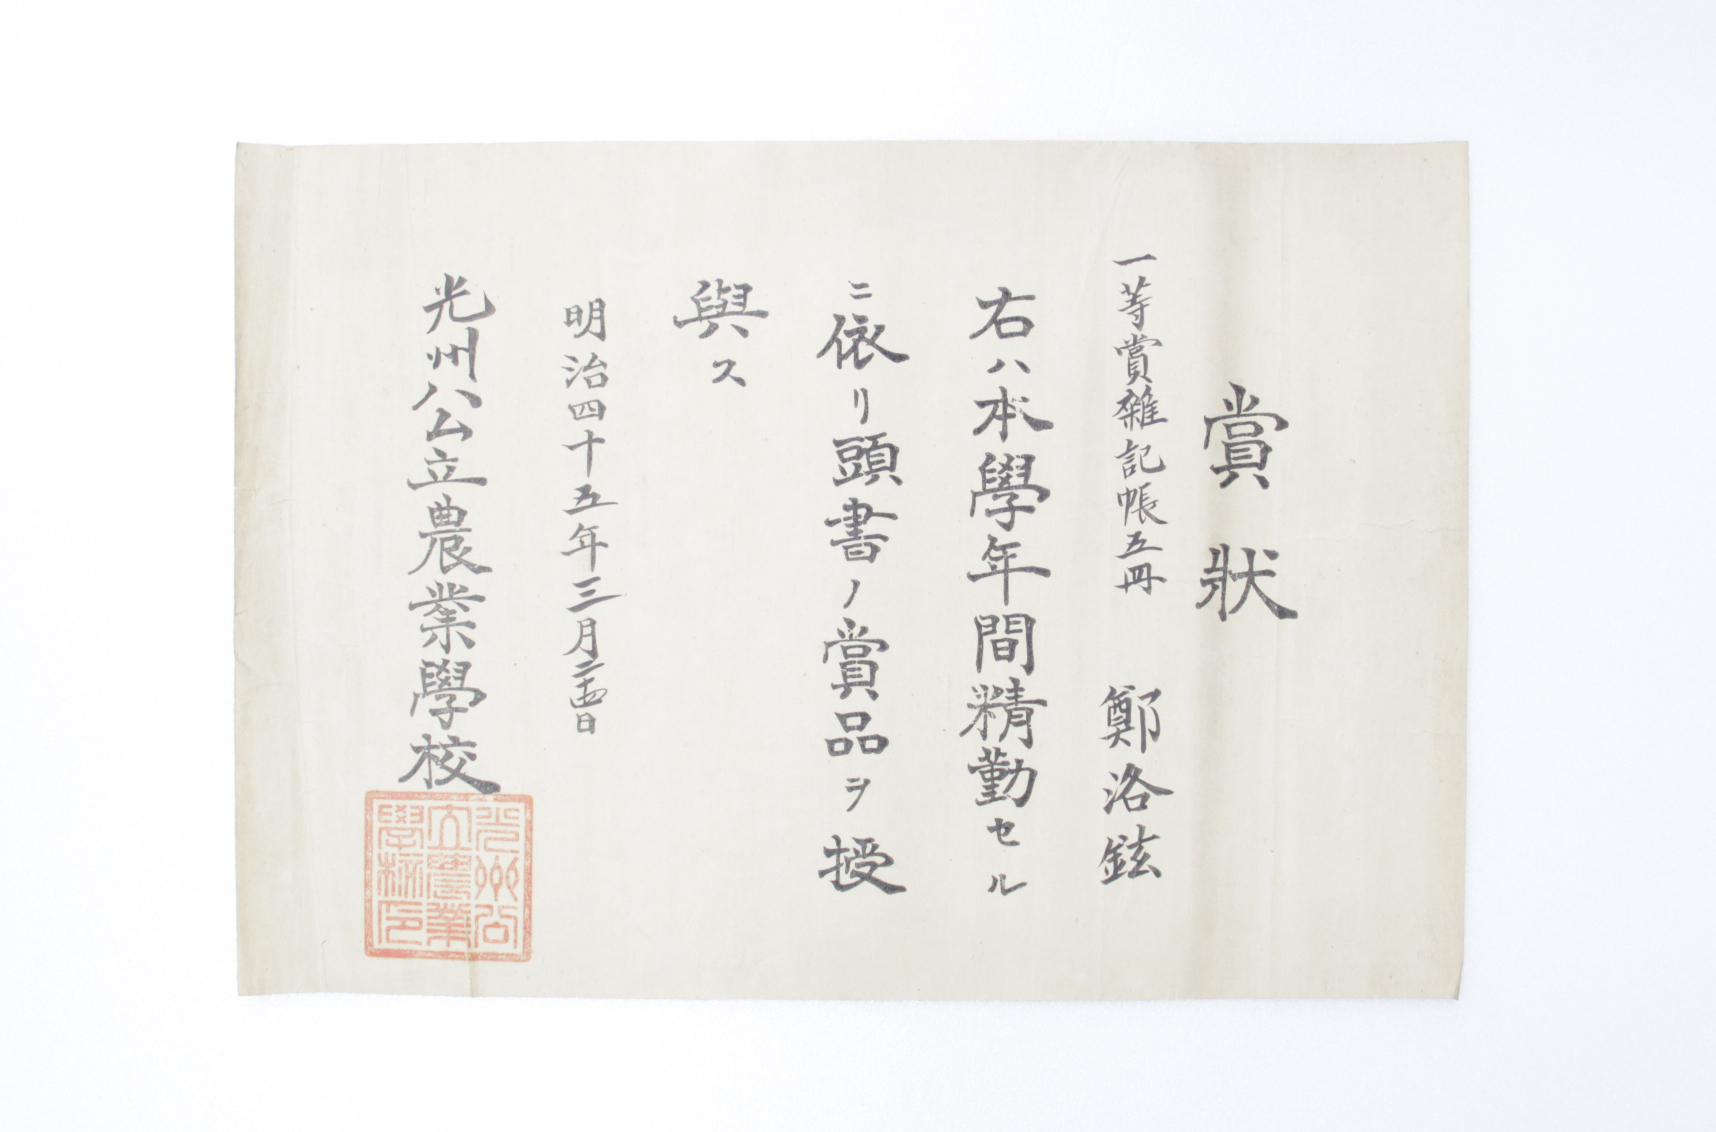 賞狀
一等賞雜記帳五冊　鄭洛鉉
右ハ本學年間精勤セル
ニ依リ頭書ノ賞品ヲ授
與ス
明治四十五年三月二十四日
光州公立農業學校
光州公
立農業
學校印